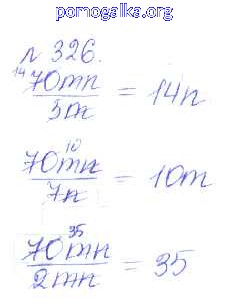 pomogalka.org
№ 326.
14
70mn
5m
= 14n
10
70mn
7n
= 10m
35
70mn
2mn
= 35